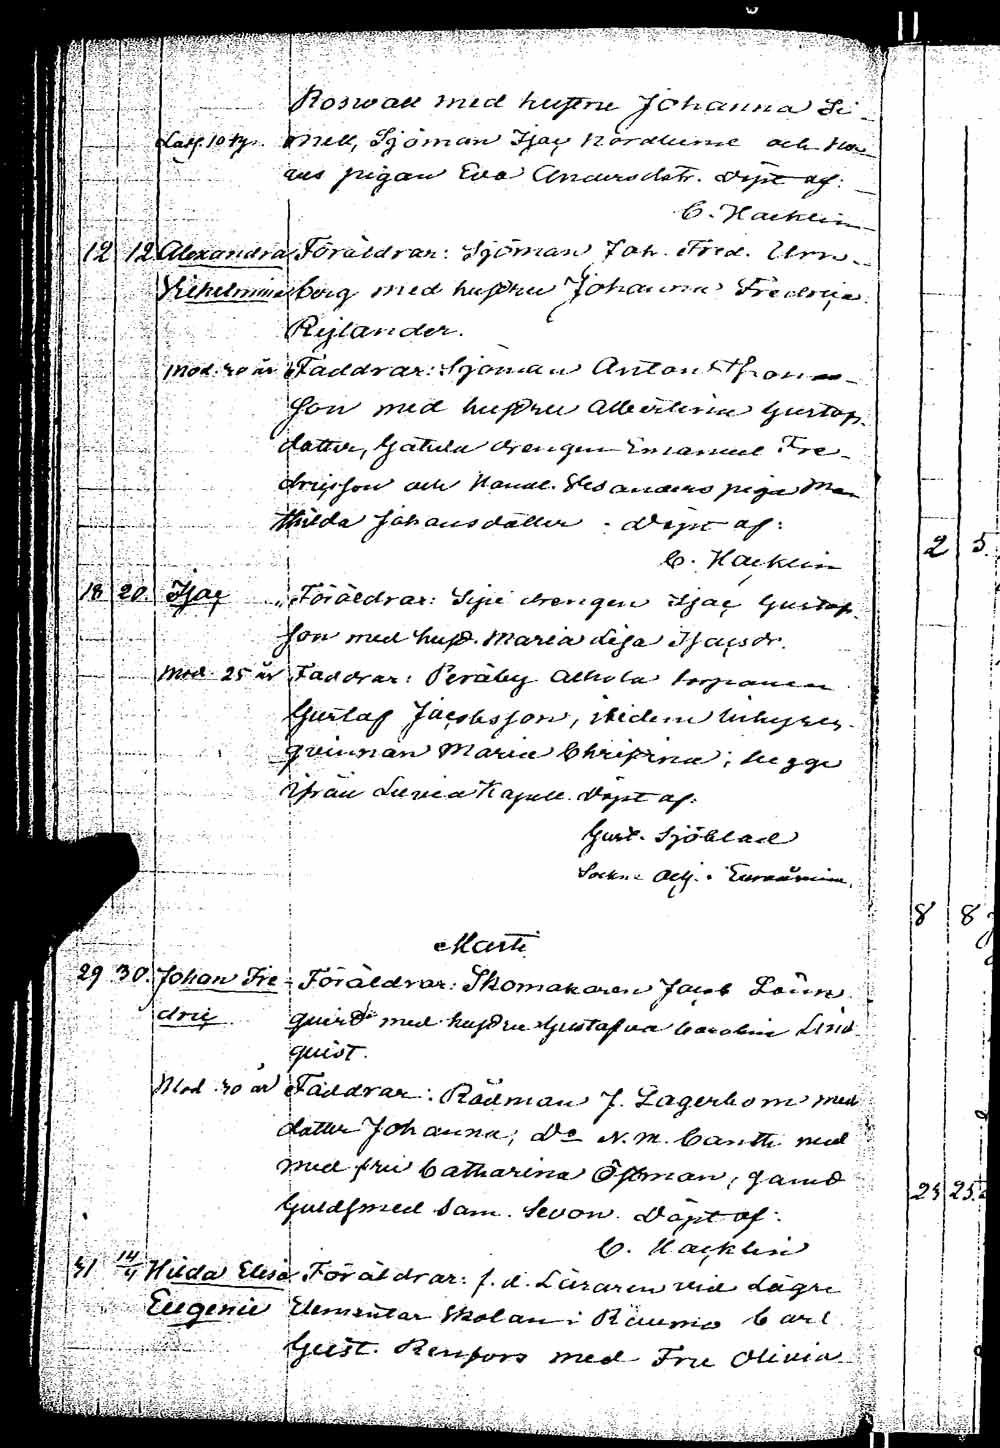 Roswall med hustru Johanna Si-
mell, Sjöman Isac Nordlund och
pigan Eva Andersdtr. Döpt af:
C. Hacklin
12 12 Alexandra Föräldrar: Sjöman Joh. Fred. Urn-
Vilhelmina berg med hustru Johanna Fredrica
Rylander.
Mod. 30 år Faddrar: Sjöman Anton
son med hustru Albertina Gustafs-
dotter, drengen Emanuel Fre-
dricsson och Handl. piga Ma-
thilda Johansdotter. Döpt af:
C. Hacklin
2 5
18 20. Isac Föräldrar: drengen Isac Gustaf-
son med hust. Maria Lisa Isacsdr.
Mod. 25 år Faddrar: Peräby Alhola torparen
Gustaf Jacobsson, ibidem inhyses-
qvinnan Maria Christina; begge
ifrån Luvia Kapell. Döpt af:
Gust. Sjöblad
Sockne Adj. i Euraåminne.
8 8
Marti
29 30. Johan Fre- Föräldrar: Skomakaren Jacob Lönn-
dric quist med hustru Gustafva Carolina Lind-
quist.
Mod. 30 år Faddrar: Rådman J. Lagerbom med
dotter Johanna; Do N. M. Canth med
med fru Catharina Östman, samt
Guldsmed Sam. Sevon. Döpt af:
C. Hacklin
25 25
31 14/4 Hilda Elisa Föräldrar: f. d. Läraren vid Lägre
Eugenie Elementar Skolan i Raumo Carl
Gust. Renfors med Fru Olivia